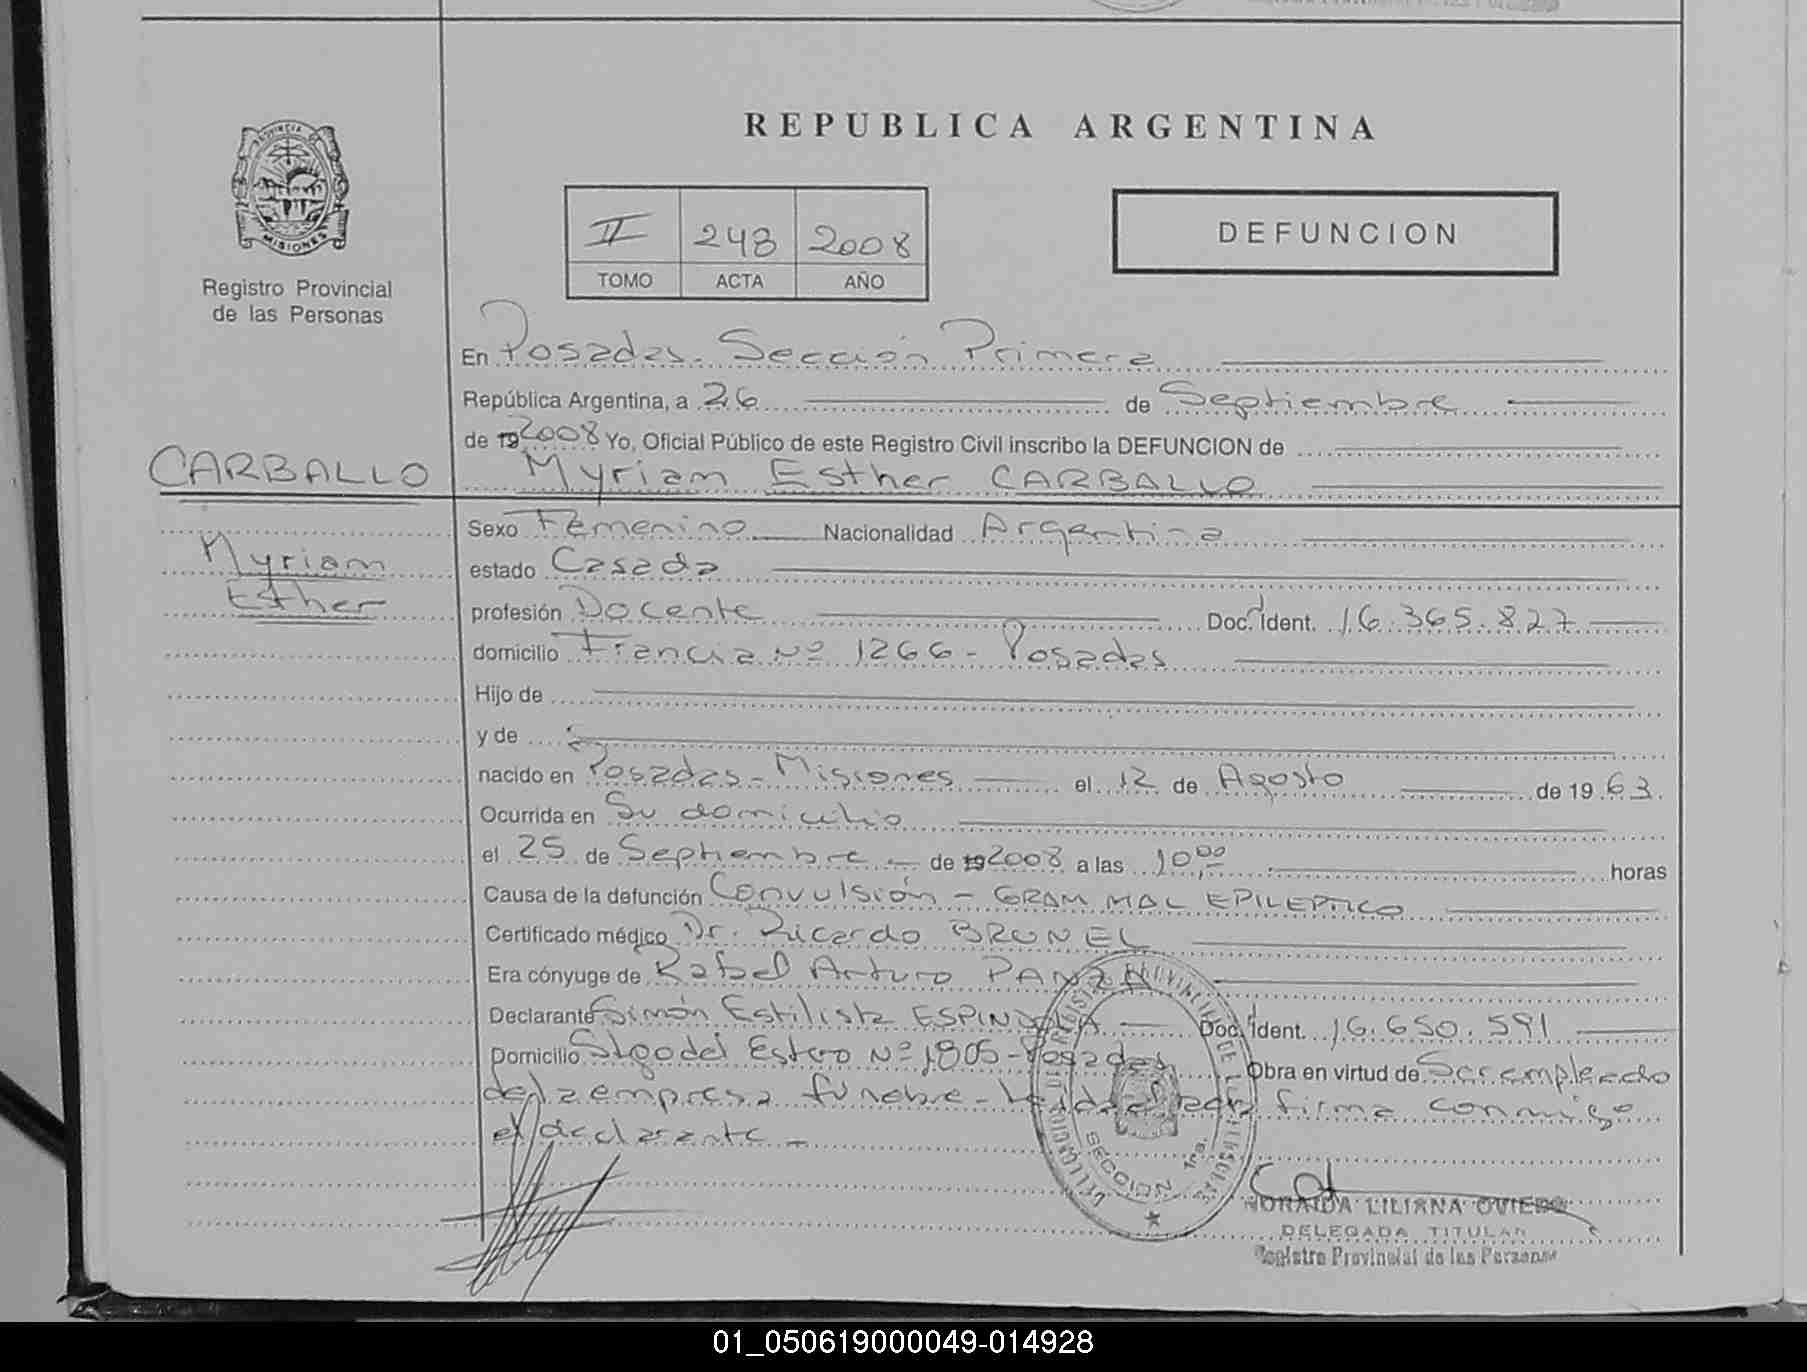 REPUBLICA ARGENTINA
PROVINCIA
MISIONES
Registro Provincial
de las Personas
II 248 2008
TOMO ACTA AÑO
DEFUNCION
En Posadas. Sección Primera
República Argentina, a 26 de Septiembre
de 19 2008 Yo, Oficial Público de este Registro Civil inscribo la DEFUNCION de
CARBALLO
Myriam Esther CARBALLO
Myriam
Esther
Sexo Femenino Nacionalidad Argentina
estado Casada
profesión Docente Doc. Ident. 16.365.827
domicilio Francia Nº 1266 - Posadas
Hijo de
y de
nacido en Posadas - Misiones el 12 de Agosto de 19 63.
Ocurrida en Su domicilio
el 25 de Septiembre - de 19 2008 a las 10,00 horas
Causa de la defunción Convulsión - GRAM MAL EPILEPTICO
Certificado médico Dr. Ricardo BRUNEL
Era cónyuge de Rafael Arturo PANZA
Declarante Simón Estilista ESPINDOLA Doc. Ident. 16.650.591
Domicilio Stgo del Estero Nº 1805 - Posadas Obra en virtud de Ser empleado
de la empresa fúnebre - firma conmigo
el declarante -
SECCION 1ra.
NORAIDA LILIANA OVIEDO
DELEGADA TITULAR
Registro Provincial de las Personas
01_050619000049-014928